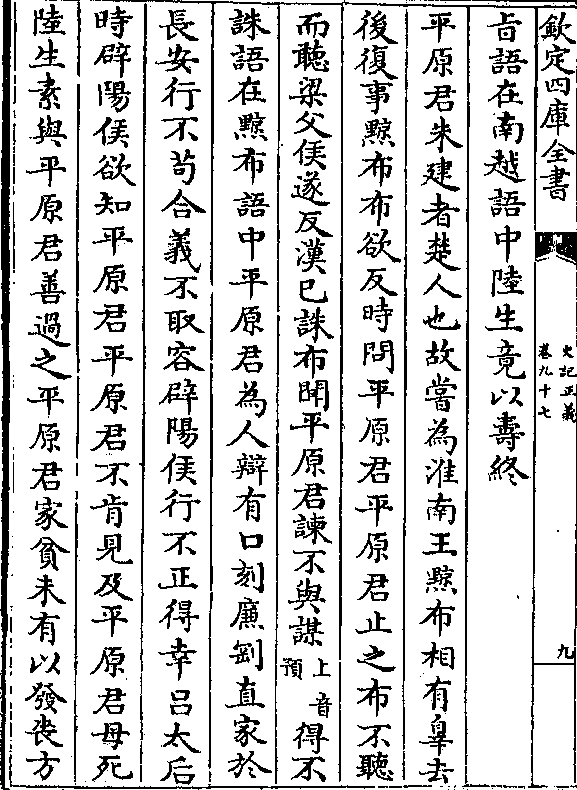 欽定四庫全書
史記正義
卷九十七
九
旨語在南越語中陸生竟以壽終
平原君朱建者楚人也故嘗為淮南王黥布相有辠去
後復事黥布布欲反時問平原君平原君止之布不聽
而聽梁父侯遂反漢已誅布聞平原君諫不與謀上音預得不
誅語在黥布語中平原君為人辯有口刻廉剛直家於
長安行不苟合義不取容辟陽侯行不正得幸呂太后
時辟陽侯欲知平原君平原君不肯見及平原君母死
陸生素與平原君善過之平原君家貧未有以發喪方